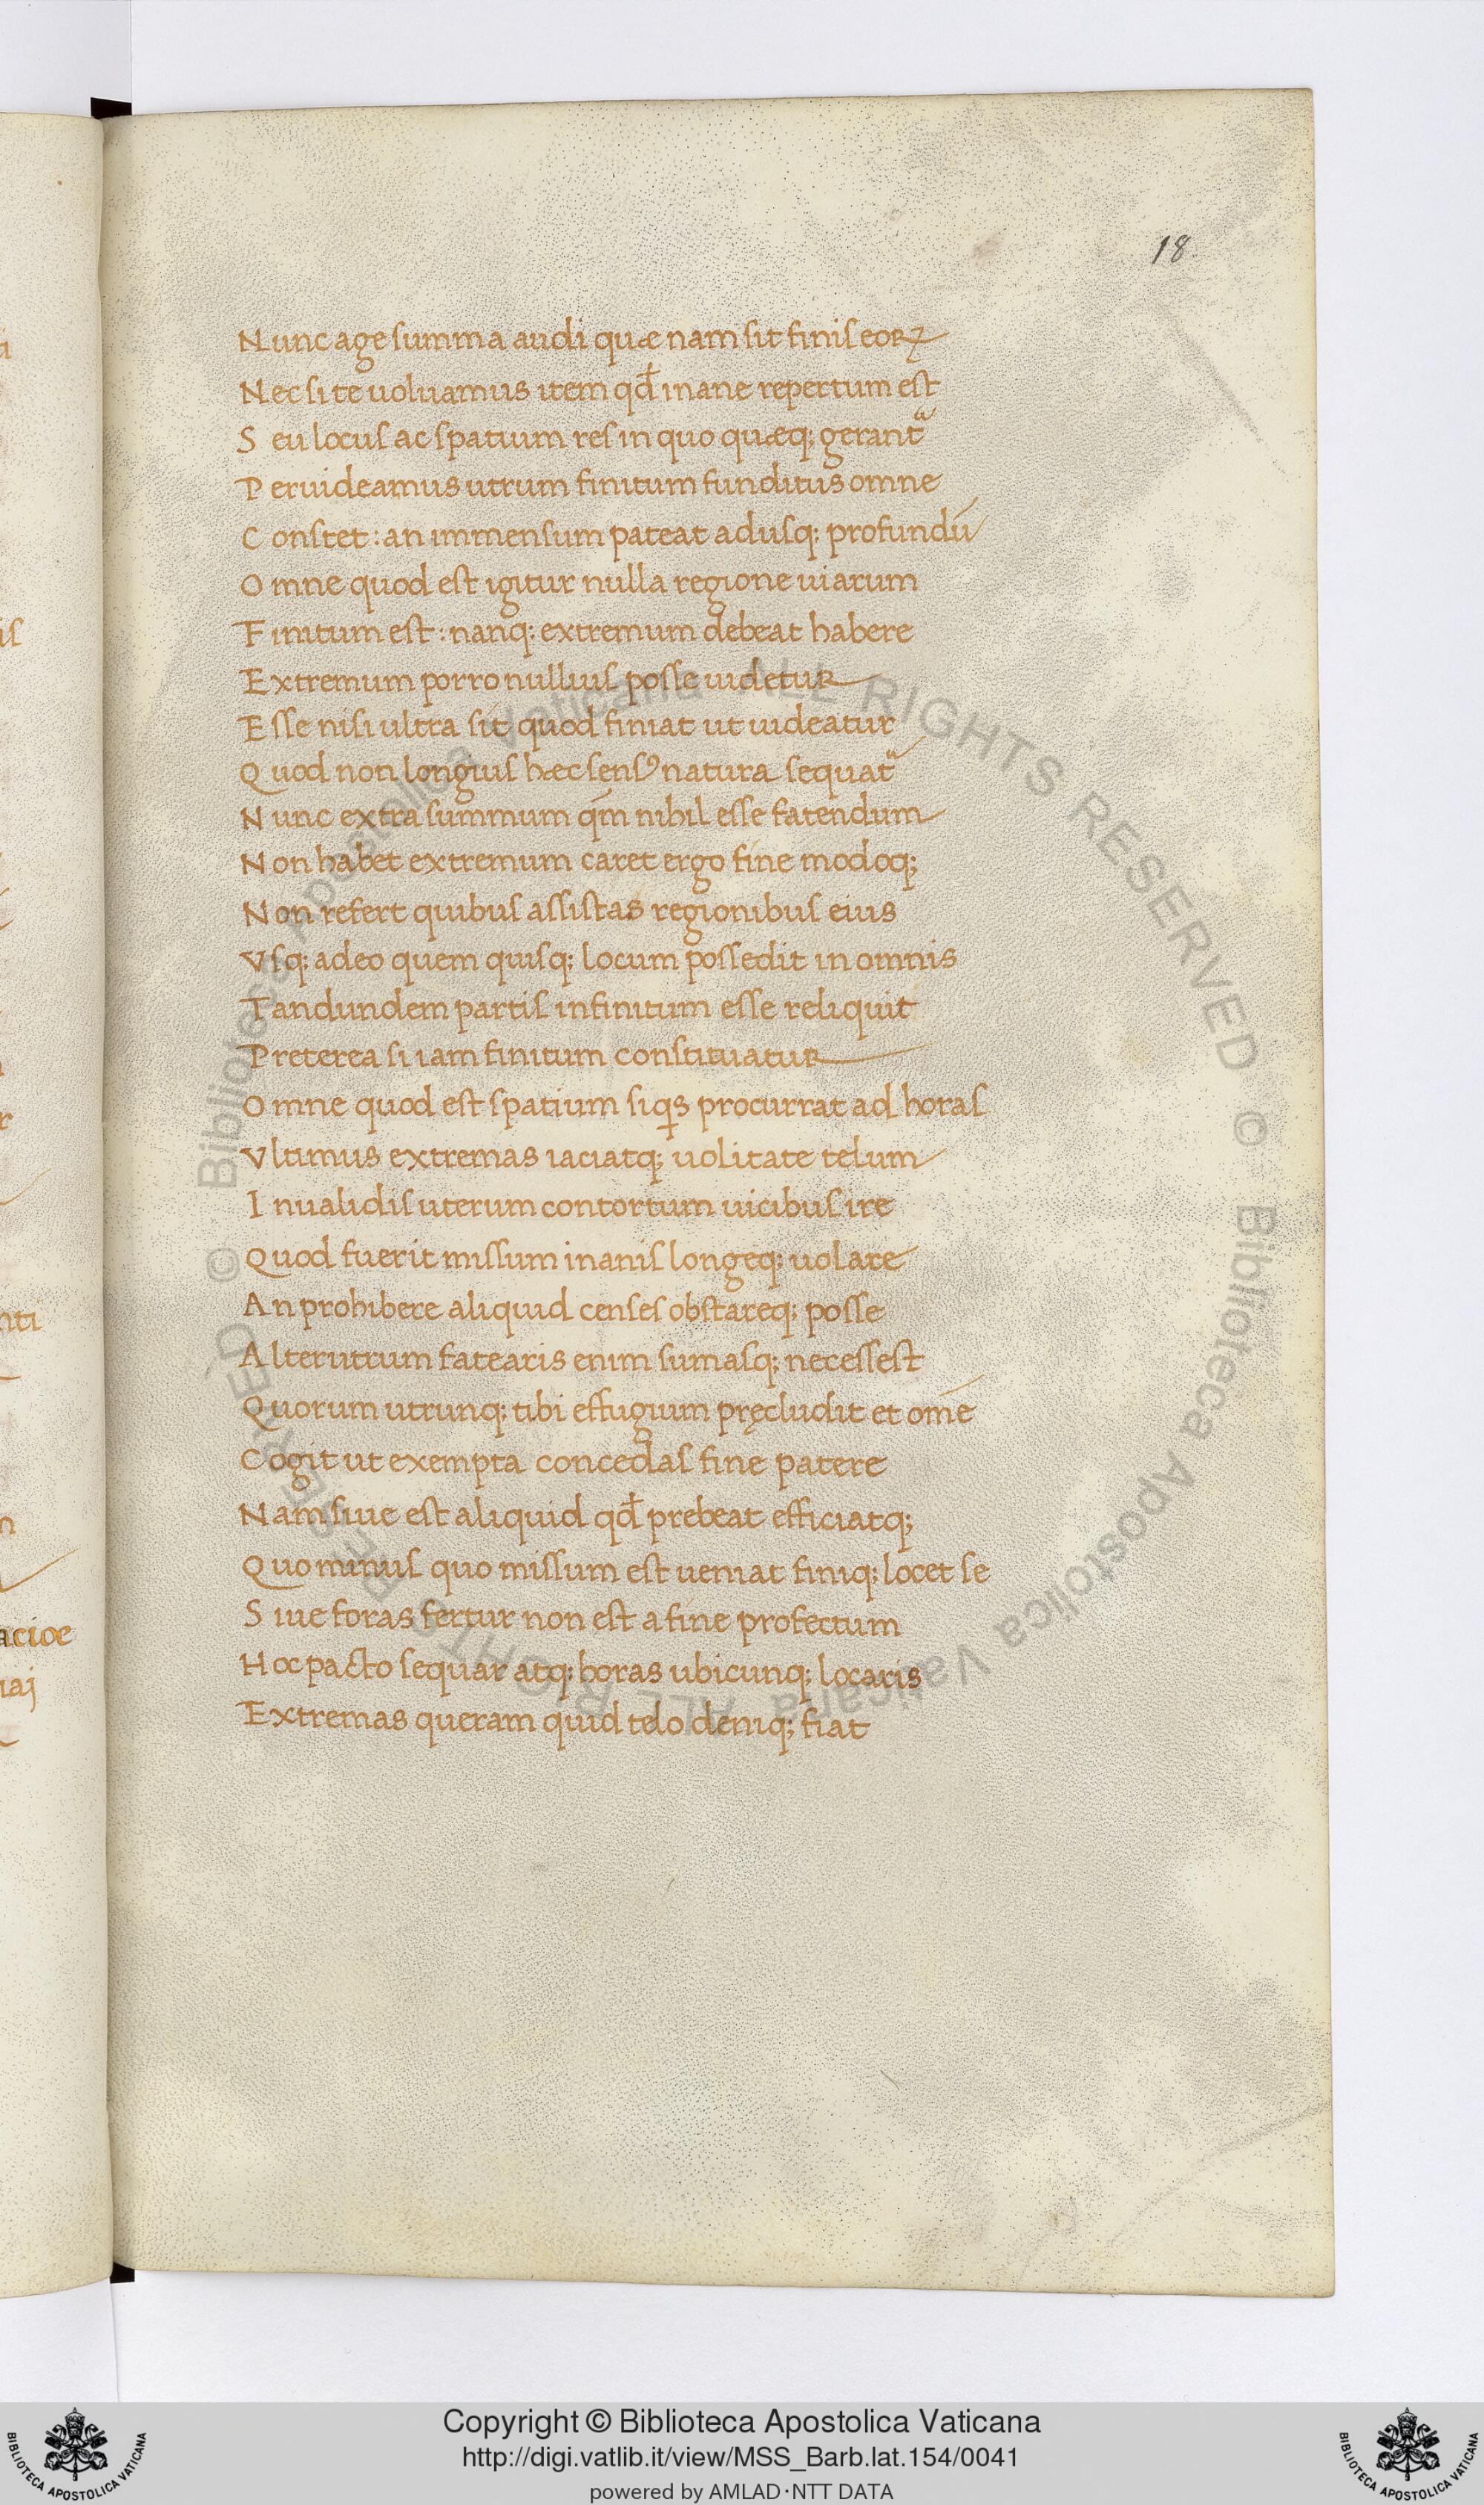 18
Nunc age summa audi quæ nam sit finis eoꝝ
Nec si te uoluamus item qđ inane repertum est
Seu locus ac spatium res in quo quæq; gerant᷑
Peruideamus utrum finitum funditus omne
Constet: an immensum pateat adusq; profundū
Omne quod est igitur nulla regione uiarum
Finitum est: nanq; extremum debeat habere
Extremum porro nullius posse uidetur
Esse nisi ultra sit quod finiat ut uideatur
Quod non longius hæc sensꝰ natura sequat᷑
Nunc extra summum qm̄ nihil esse fatendum
Non habet extremum caret ergo fine modoq;
Non refert quibus assistas regionibus eius
Vsq; adeo quem quisq; locum possedit in omnis
Tandundem partis infinitum esse reliquit
Preterea si iam finitum constituatur
Omne quod est spatium siꝗs procurrat ad horas
Vltimus extremas iaciatq; uolitate telum
Inualidis uterum contortum uicibus ire
Quod fuerit missum inanis longeq; uolare
An prohibere aliquid censes obstareq; posse
Alterutrum fatearis enim sumasq; necessest
Quorum utrunq; tibi effugium pręcludit et om̄e
Cogit ut exempta concedas fine patere
Nam siue est aliquid qđ prebeat efficiatq;
Quominus quo missum est ueniat finiq; locet se
Siue foras fertur non est a fine profectum
Hoc pacto sequar atq; horas ubicunq; locaris
Extremas queram quid telo deniq; fiat
© Biblioteca Apostolica Vaticana ALL RIGHTS RESERVED © Biblioteca Apostolica Vaticana ALL RIGHTS RESERVED
Copyright © Biblioteca Apostolica Vaticana
http://digi.vatlib.it/view/MSS_Barb.lat.154/0041
powered by AMLAD·NTT DATA
BIBLIOTECA APOSTOLICA VATICANA
BIBLIOTECA APOSTOLICA VATICANA